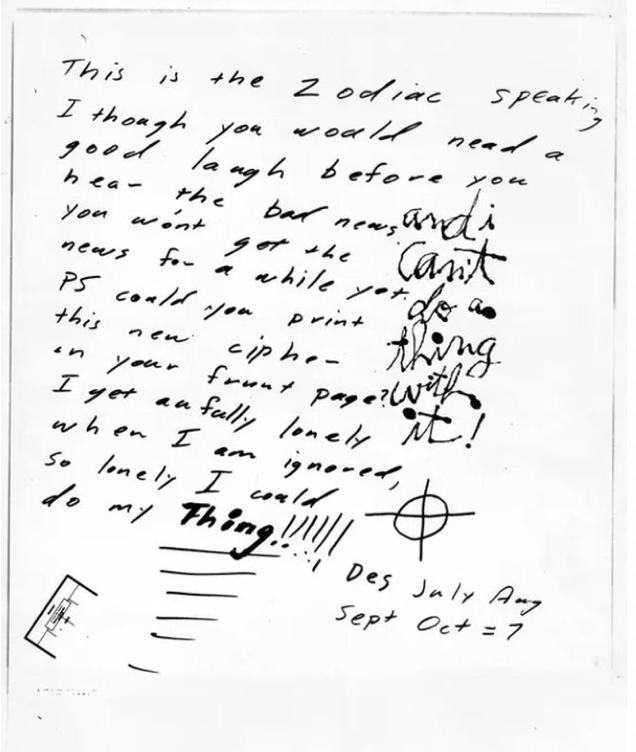 This is the Zodiac speaking
I though you would nead a
good laugh before you
hear the bad news
you won't get the
news for a while yet.
PS could you print
this new cipher
in your frunt page?
I get aufully lonely
when I am ignored,
so lonely I could
do my Thing!!!!!!
and i
can't
do a
thing
with
it!
Des July Aug
Sept Oct = 7